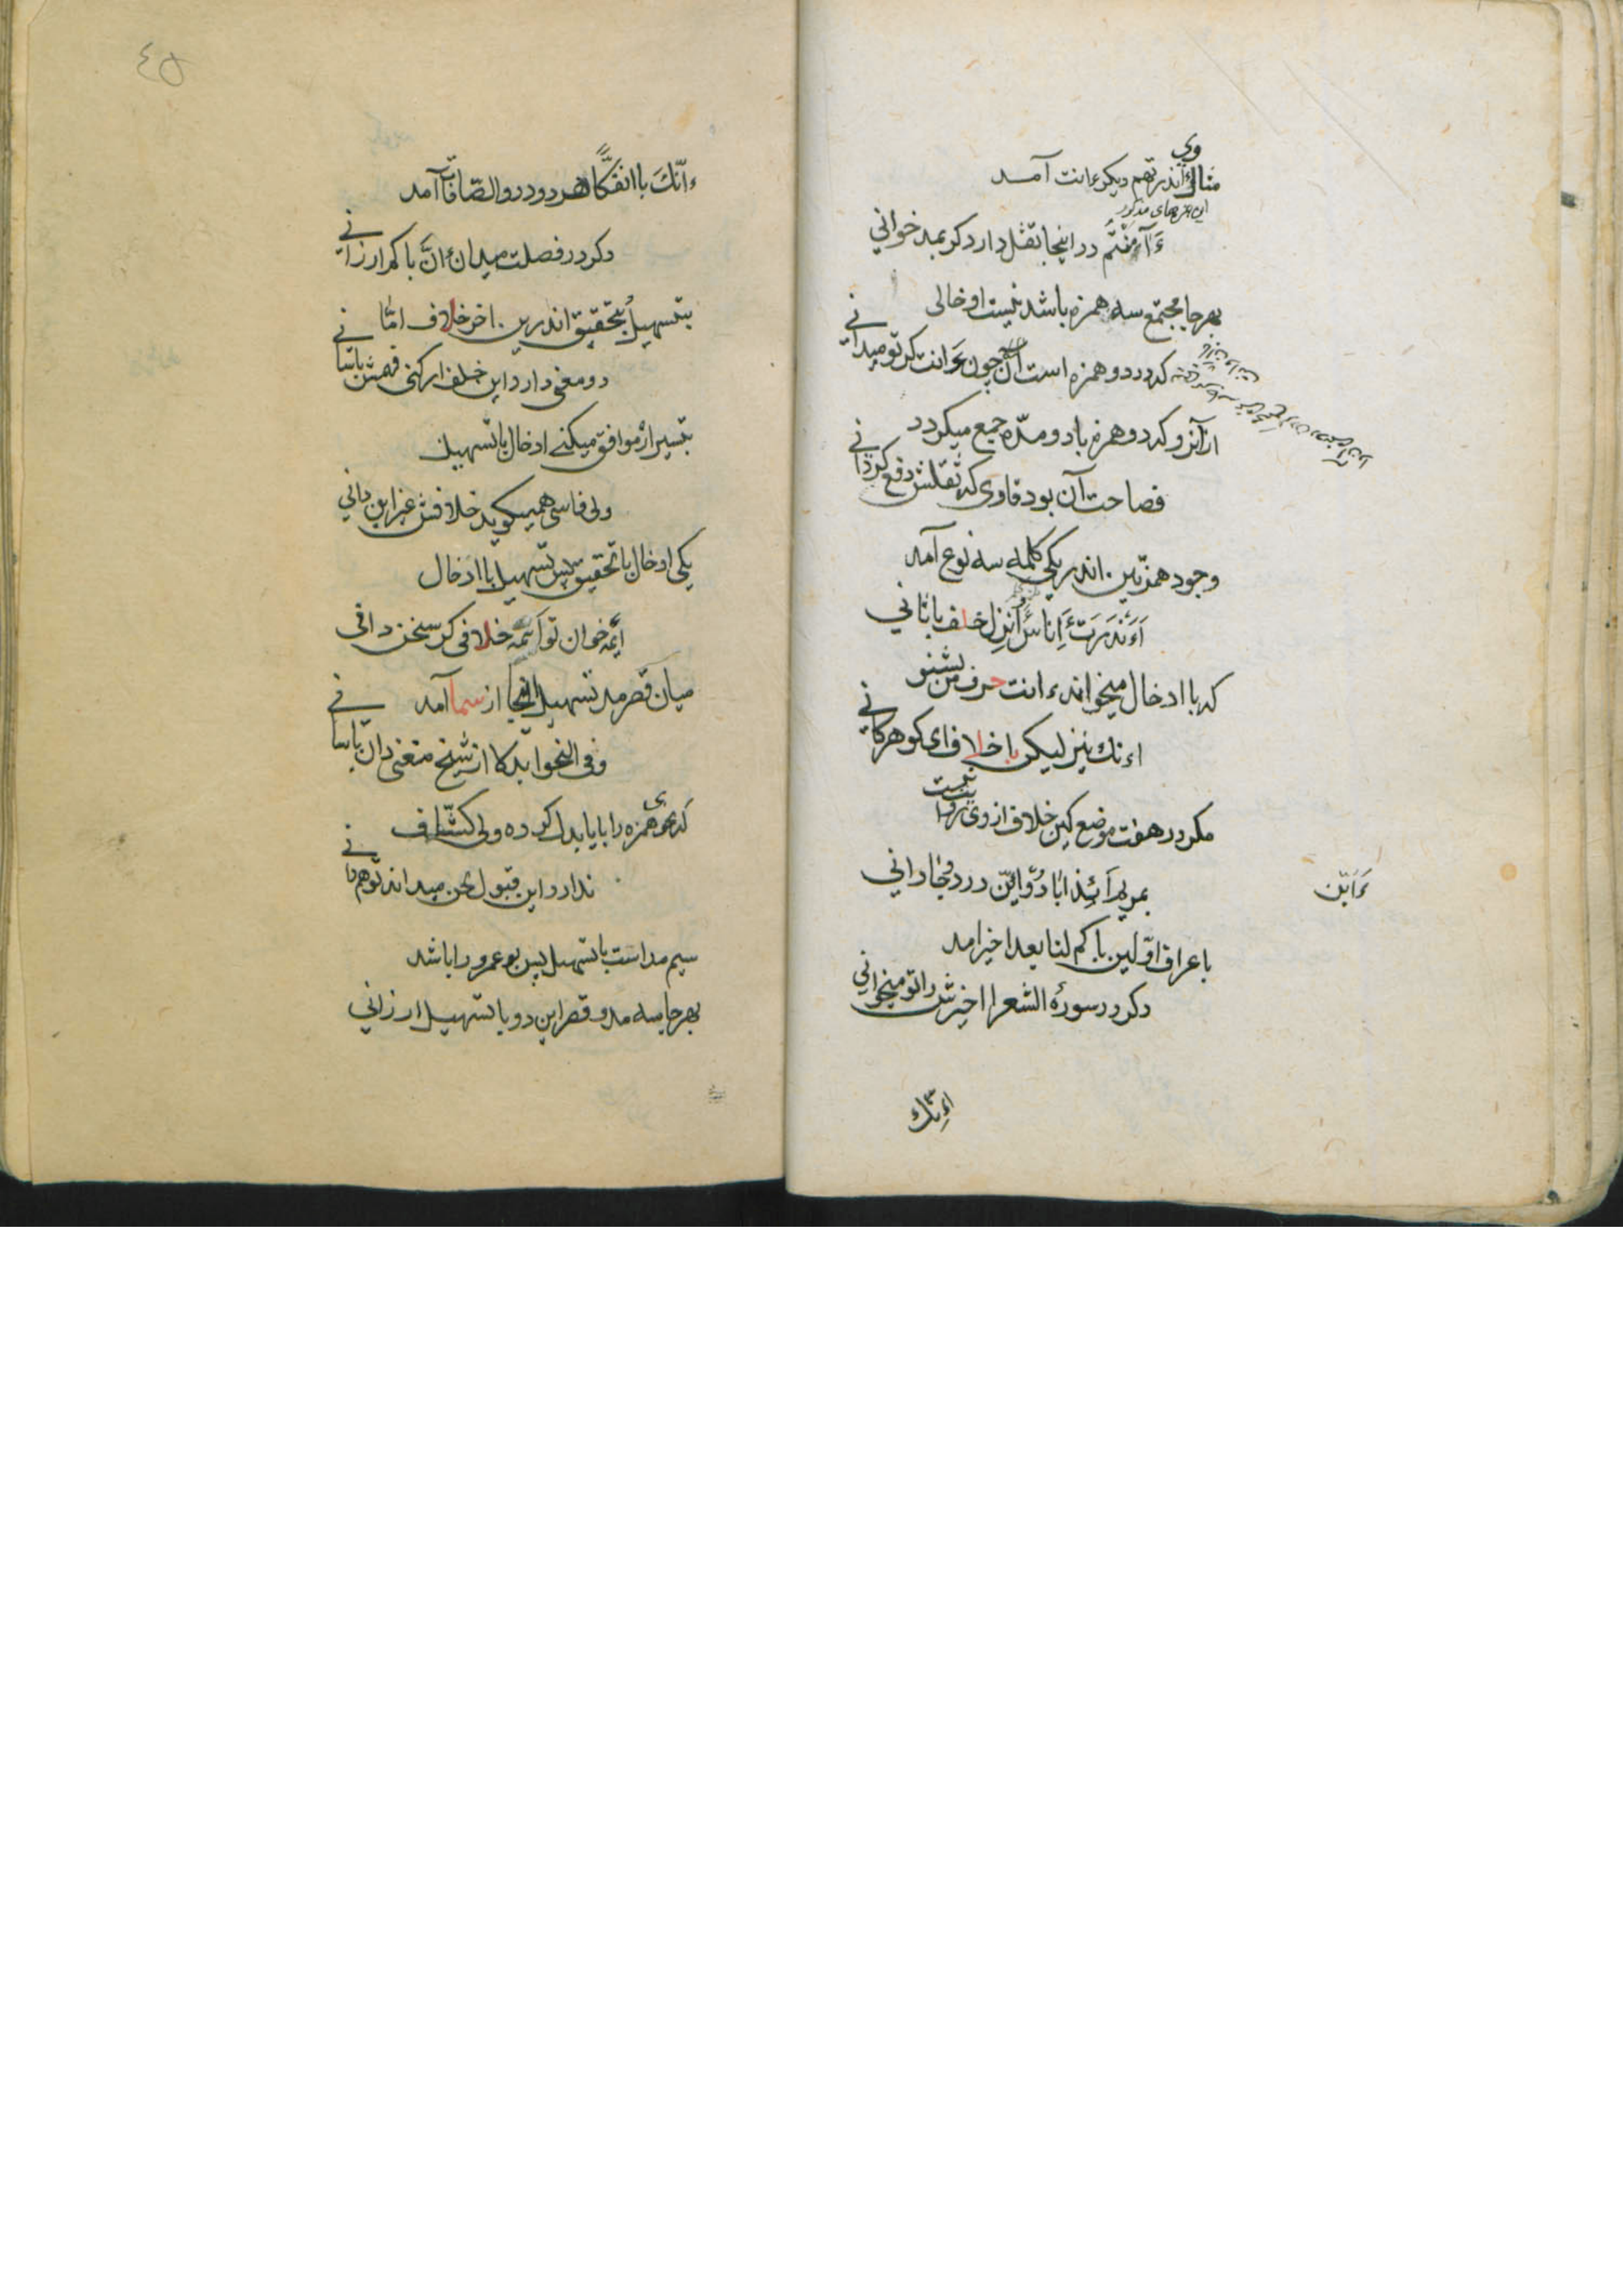 مثال ءَانذرتهم دیکر ءانت آمد
ءَآمنتم در اینجا ثقل دارد کر بمد خوانی
بهر جا مجتمع سه همزه باشد نیست او خالی
که در دو همزه است آن چون ءَانت کر تو میدانی
از آنرو که دو همزه با دو مدّه جمع میکردد
فصاحت آن بود قاری که ثقلش دفع کردانی
وجود همزتین اندر یکی کلمه سه نوع آمد
ءَاَنذرت ءَاِنا اَءُنزل خلف با ثانی
که با ادخال میخواند ءانت حرف من بشنو
اءنك نیز لیکن با خلاف ای کوهر کانی
مکر در هفت موضع کین خلاف از وی نیست
بمریم اَئِذا بادو و ائن در دو جا دانی
باعراف اوّلین باکم لنا بعد اخیر آمد
دکر در سورۀ الشعرا اخیرش را تو میخوانی
اءنك
ءَاَئن
٤٥
ءانّكَ با ائفكًا هر دو در والصّافات آمد
دکر در فصلت میدان ءانَّ باکم ارزانی
بتسهیل و بتحقیق اندرین آخر خلاف امّا
دو معنی دارد این خلف ار کنی فهمش باسانی
بتسیر ار موافق میکنی ادخال با تسهیل
ولی فاسی همیکوید خلافش غیر این دانی
یکی ادخال با تحقیق پس تسهیل با ادخال
ائِمّه خوان تو ائمه خلافی کر سخن دانی
میان قصر مد تسهیل اینجا از سما آمد
وفی النحو ابدلا از شیخ معنی دان باسانی
که نحوی همزه را با یا بدل کرده ولی کشّاف
ندارد این قبول لحن میداند تو هم دانی
سیم مد است با تسهیل پس بوعمرو را باشد
بهر جا سه مد و قصر این دو با تسهیل ارزانی